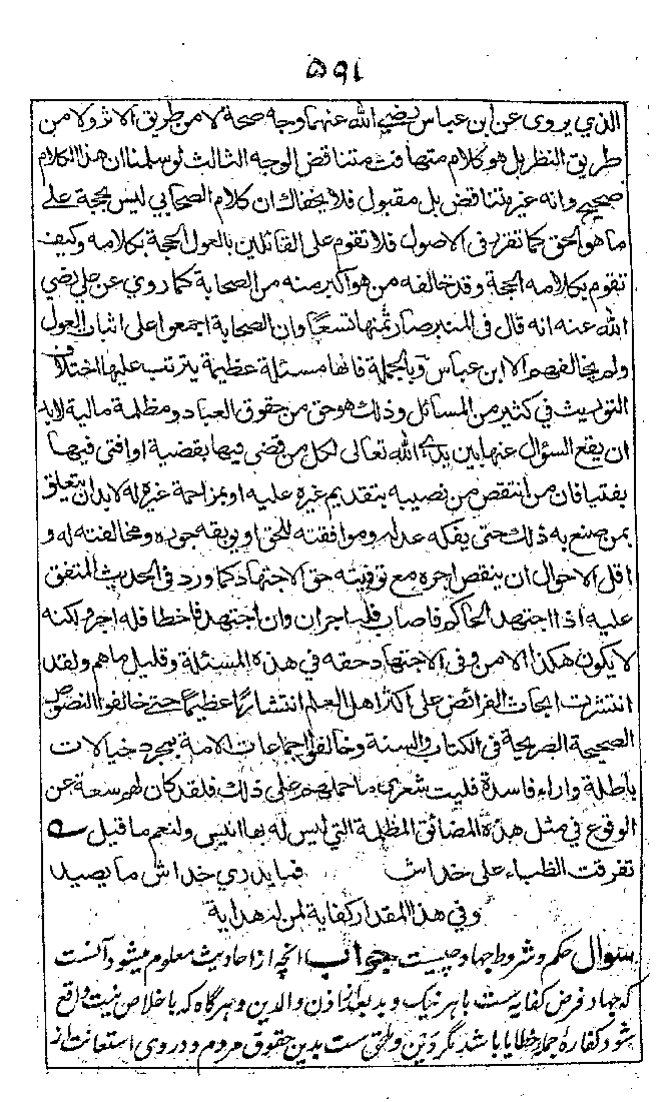 ۵۹۱
الذي يروى عن ابن عباس رضي الله عنهما وجه صحة لا من طريق الاثر ولا من
طريق النظر بل هو كلام متهافت متناقض الوجه الثالث لو سلمنا ان هذا الكلام
صحيح وانه غير متناقض بل مقبول فلا يخفاك ان كلام الصحابي ليس بحجة على
ما هو الحق كما تقرر فى الاصول فلا تقوم على القائلين بالعول الحجة بكلامه وكيف
تقوم بكلامه الحجة وقد خالفه من هو اكبر منه من الصحابة كما روي عن علي رضي
الله عنه انه قال فى المنبر صار ثمنها تسعا وان الصحابة اجمعوا على اثبات العول
ولم يخالفهم الا ابن عباس وبالجملة فانها مسئلة عظيمة يترتب عليها اختلاف
التوريث في كثير من المسائل وذلك هو حق من حقوق العباد ومظلمة مالية لابد
ان يقع السؤال عنها بين يدي الله تعالى لكل من قضى فيها بقضية او افتى فيها
بفتيا فان من انتقص من نصيبه بتقديم غيره عليه او بمزاحمة غيره له لابد ان يتعلق
بمن صنع به ذلك حتى يفكه عدله وموافقته للحق او يوبقه جوره ومخالفته له و
اقل الاحوال ان ينقص اجره مع توفيته حق الاجتهاد كما ورد فى الحديث المتفق
عليه اذا اجتهد الحاكم فاصاب فله اجران وان اجتهد فاخطا فله اجر ولكنه
لا يكون هكذا الا من وفى الاجتهاد حقه في هذه المسئلة وقليل ما هم ولقد
انتشرت ابحاث الفرائض على اكثر اهل العلم انتشارا عظيما حتى خالفوا النصوص
الصحيحة الصريحة فى الكتاب والسنة وخالفوا اجماعات الامة بمجرد خيالات
باطلة واراء فاسدة فليت شعري ما حملهم على ذلك فلقد كان لهم سعة عن
الوقوع في مثل هذه المضائق المظلمة التي ليس له بها انيس ولنعم ما قيل
تفرقت الظباء على خداش فما يدري خداش ما يصيد
وفي هذا المقدار كفاية لمن له هداية
سوال حكم وشروط جهاد چيست جواب انچه از احاديث معلوم ميشود آنست
كه جهاد فرض كفايه ست با هر نيك وبد بعد از اذن والدين وهرگاه كه با خلاص نيت واقع
شود كفارهٔ جمله خطايا باشد مگر دين وملحق ست بدين حقوق مردم ودر وى استعانت از